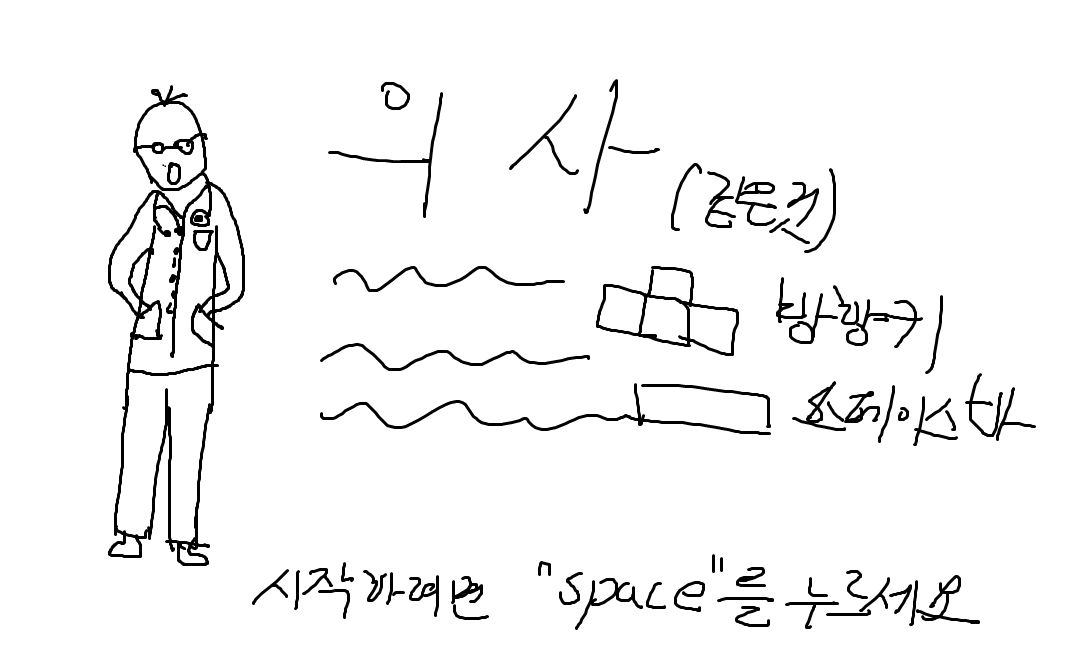 의사
(같은것)
방향키
스페이스바
시작하려면 "space"를 누르세요